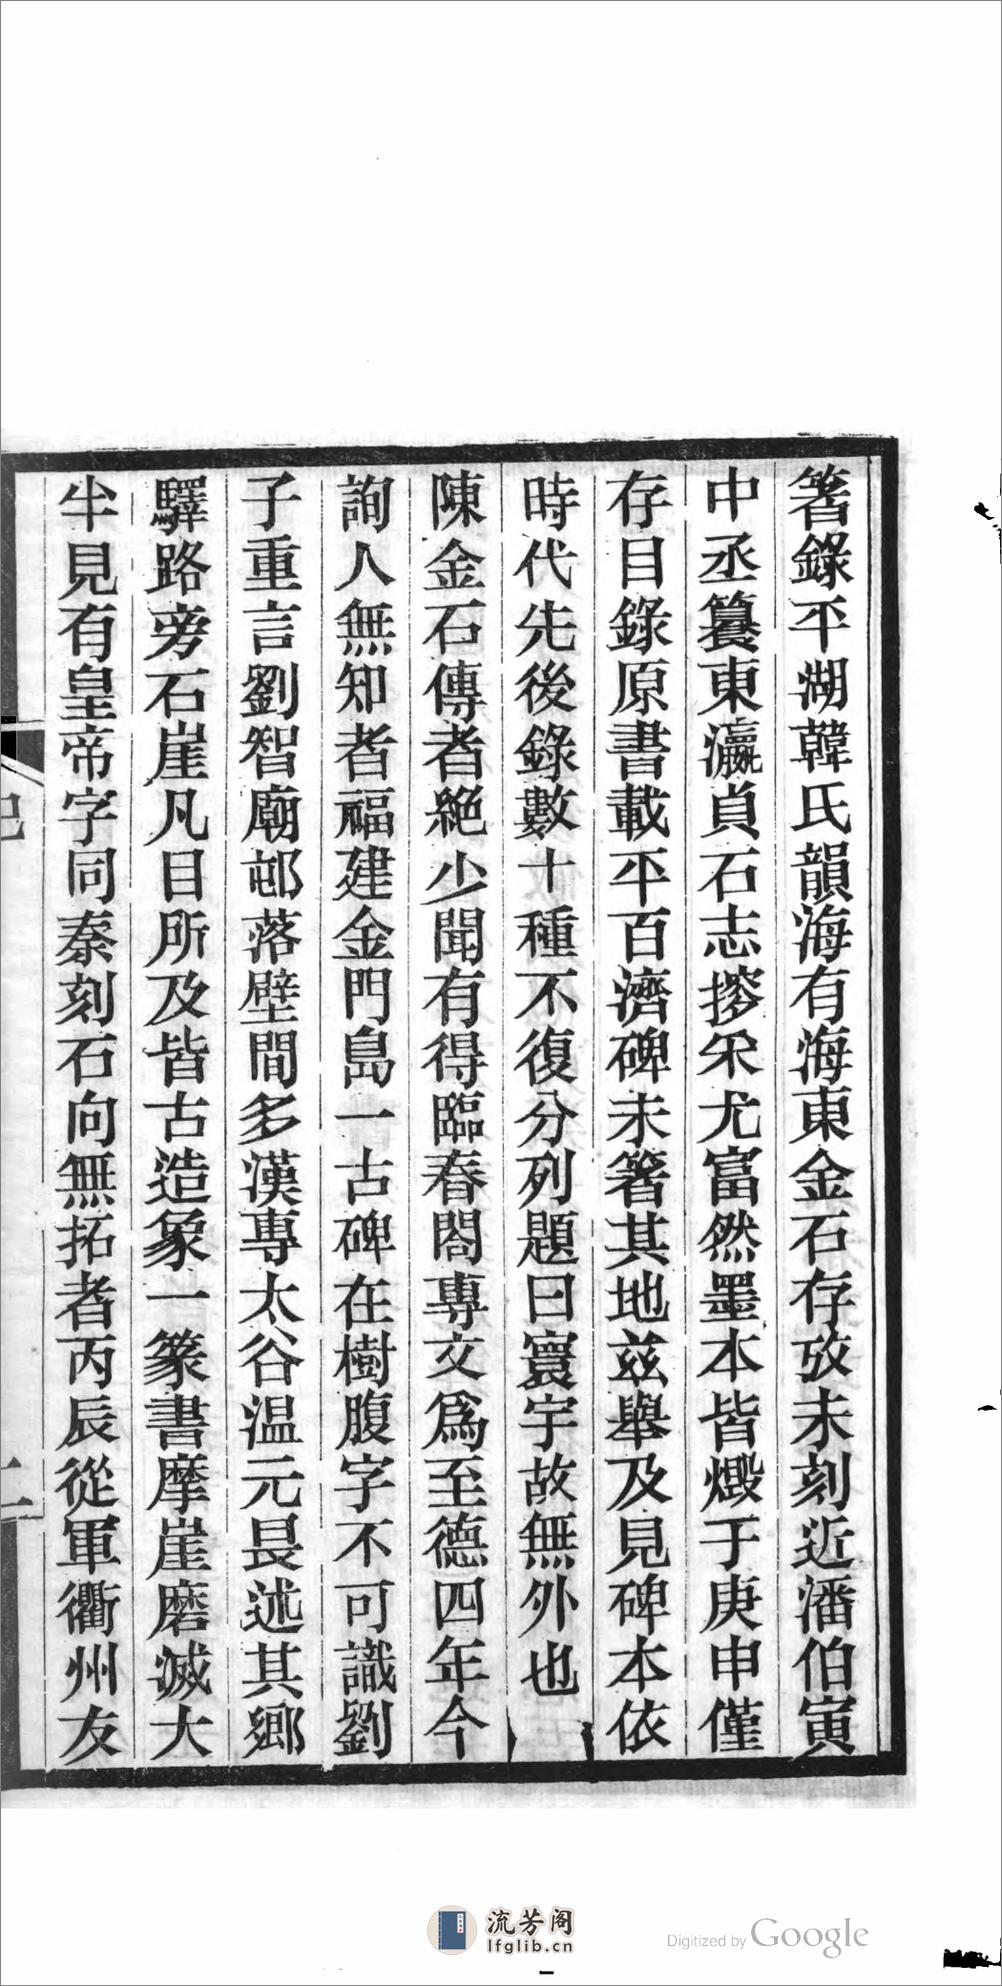 箸錄平湖韓氏韻海有海東金石存攷未刻近潘伯寅
中丞籑東瀛貞石志摉罙尤富然墨本皆燬于庚申僅
存目錄原書載平百濟碑未箸其地兹舉及見碑本依
時代先後錄數十種不復分列題曰寰宇故無外也
陳金石傳者絶少聞有得臨春閣專文爲至德四年今
詢人無知者福建金門島一古碑在樹腹字不可識劉
子重言劉智廟邨落壁間多漢專太谷温元畏述其鄉
驛路旁石崖凡目所及皆古造象一篆書摩崖磨滅大
半見有皇帝字同秦刻石向無拓者丙辰從軍衢州友
流芳阁
lfglib.cn
Digitized by Google